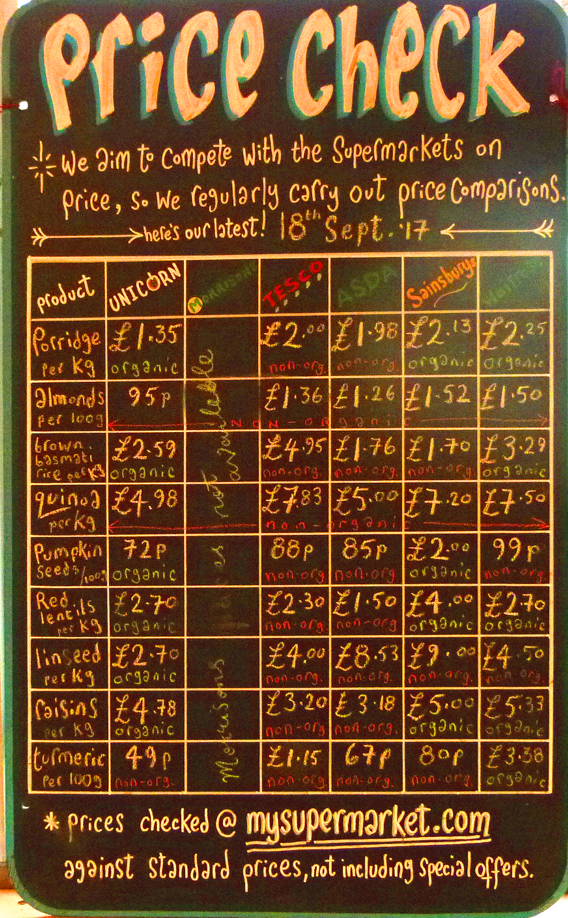 Price Check
We aim to compete with the Supermarkets on
price, so we regularly carry out price comparisons.
here's our latest! 18th Sept. '17
product UNICORN MORRISONS TESCO ASDA Sainsburys WAITROSE
Porridge per Kg £1.35 organic £2.00 non-org. £1.98 non-org. £2.13 organic £2.25 organic
almonds per 100g 95p £1.36 £1.26 £1.52 £1.50
NON-ORGANIC
brown basmati rice per Kg £2.59 organic £4.95 non-org. £1.76 non-org. £1.70 non-org. £3.29 organic
quinoa per Kg £4.98 £7.83 £5.00 £7.20 £7.50
non-organic
Pumpkin Seeds /100g 72p organic 88p non-org. 85p non-org. £2.00 organic 99p non-org.
Red lentils per Kg £2.70 organic £2.30 non-org. £1.50 non-org. £4.00 organic £2.70 organic
linseed per Kg £2.70 organic £4.00 non-org. £8.53 non-org. £9.00 non-org. £4.50 non-org.
raisins per Kg £4.78 organic £3.20 non-org. £3.18 non-org. £5.00 organic £5.33 organic
turmeric per 100g 49p non-org. £1.15 non-org. 67p non-org. 80p non-org. £3.38 organic
Morrisons prices not available
* prices checked @ mysupermarket.com
against standard prices, not including special offers.